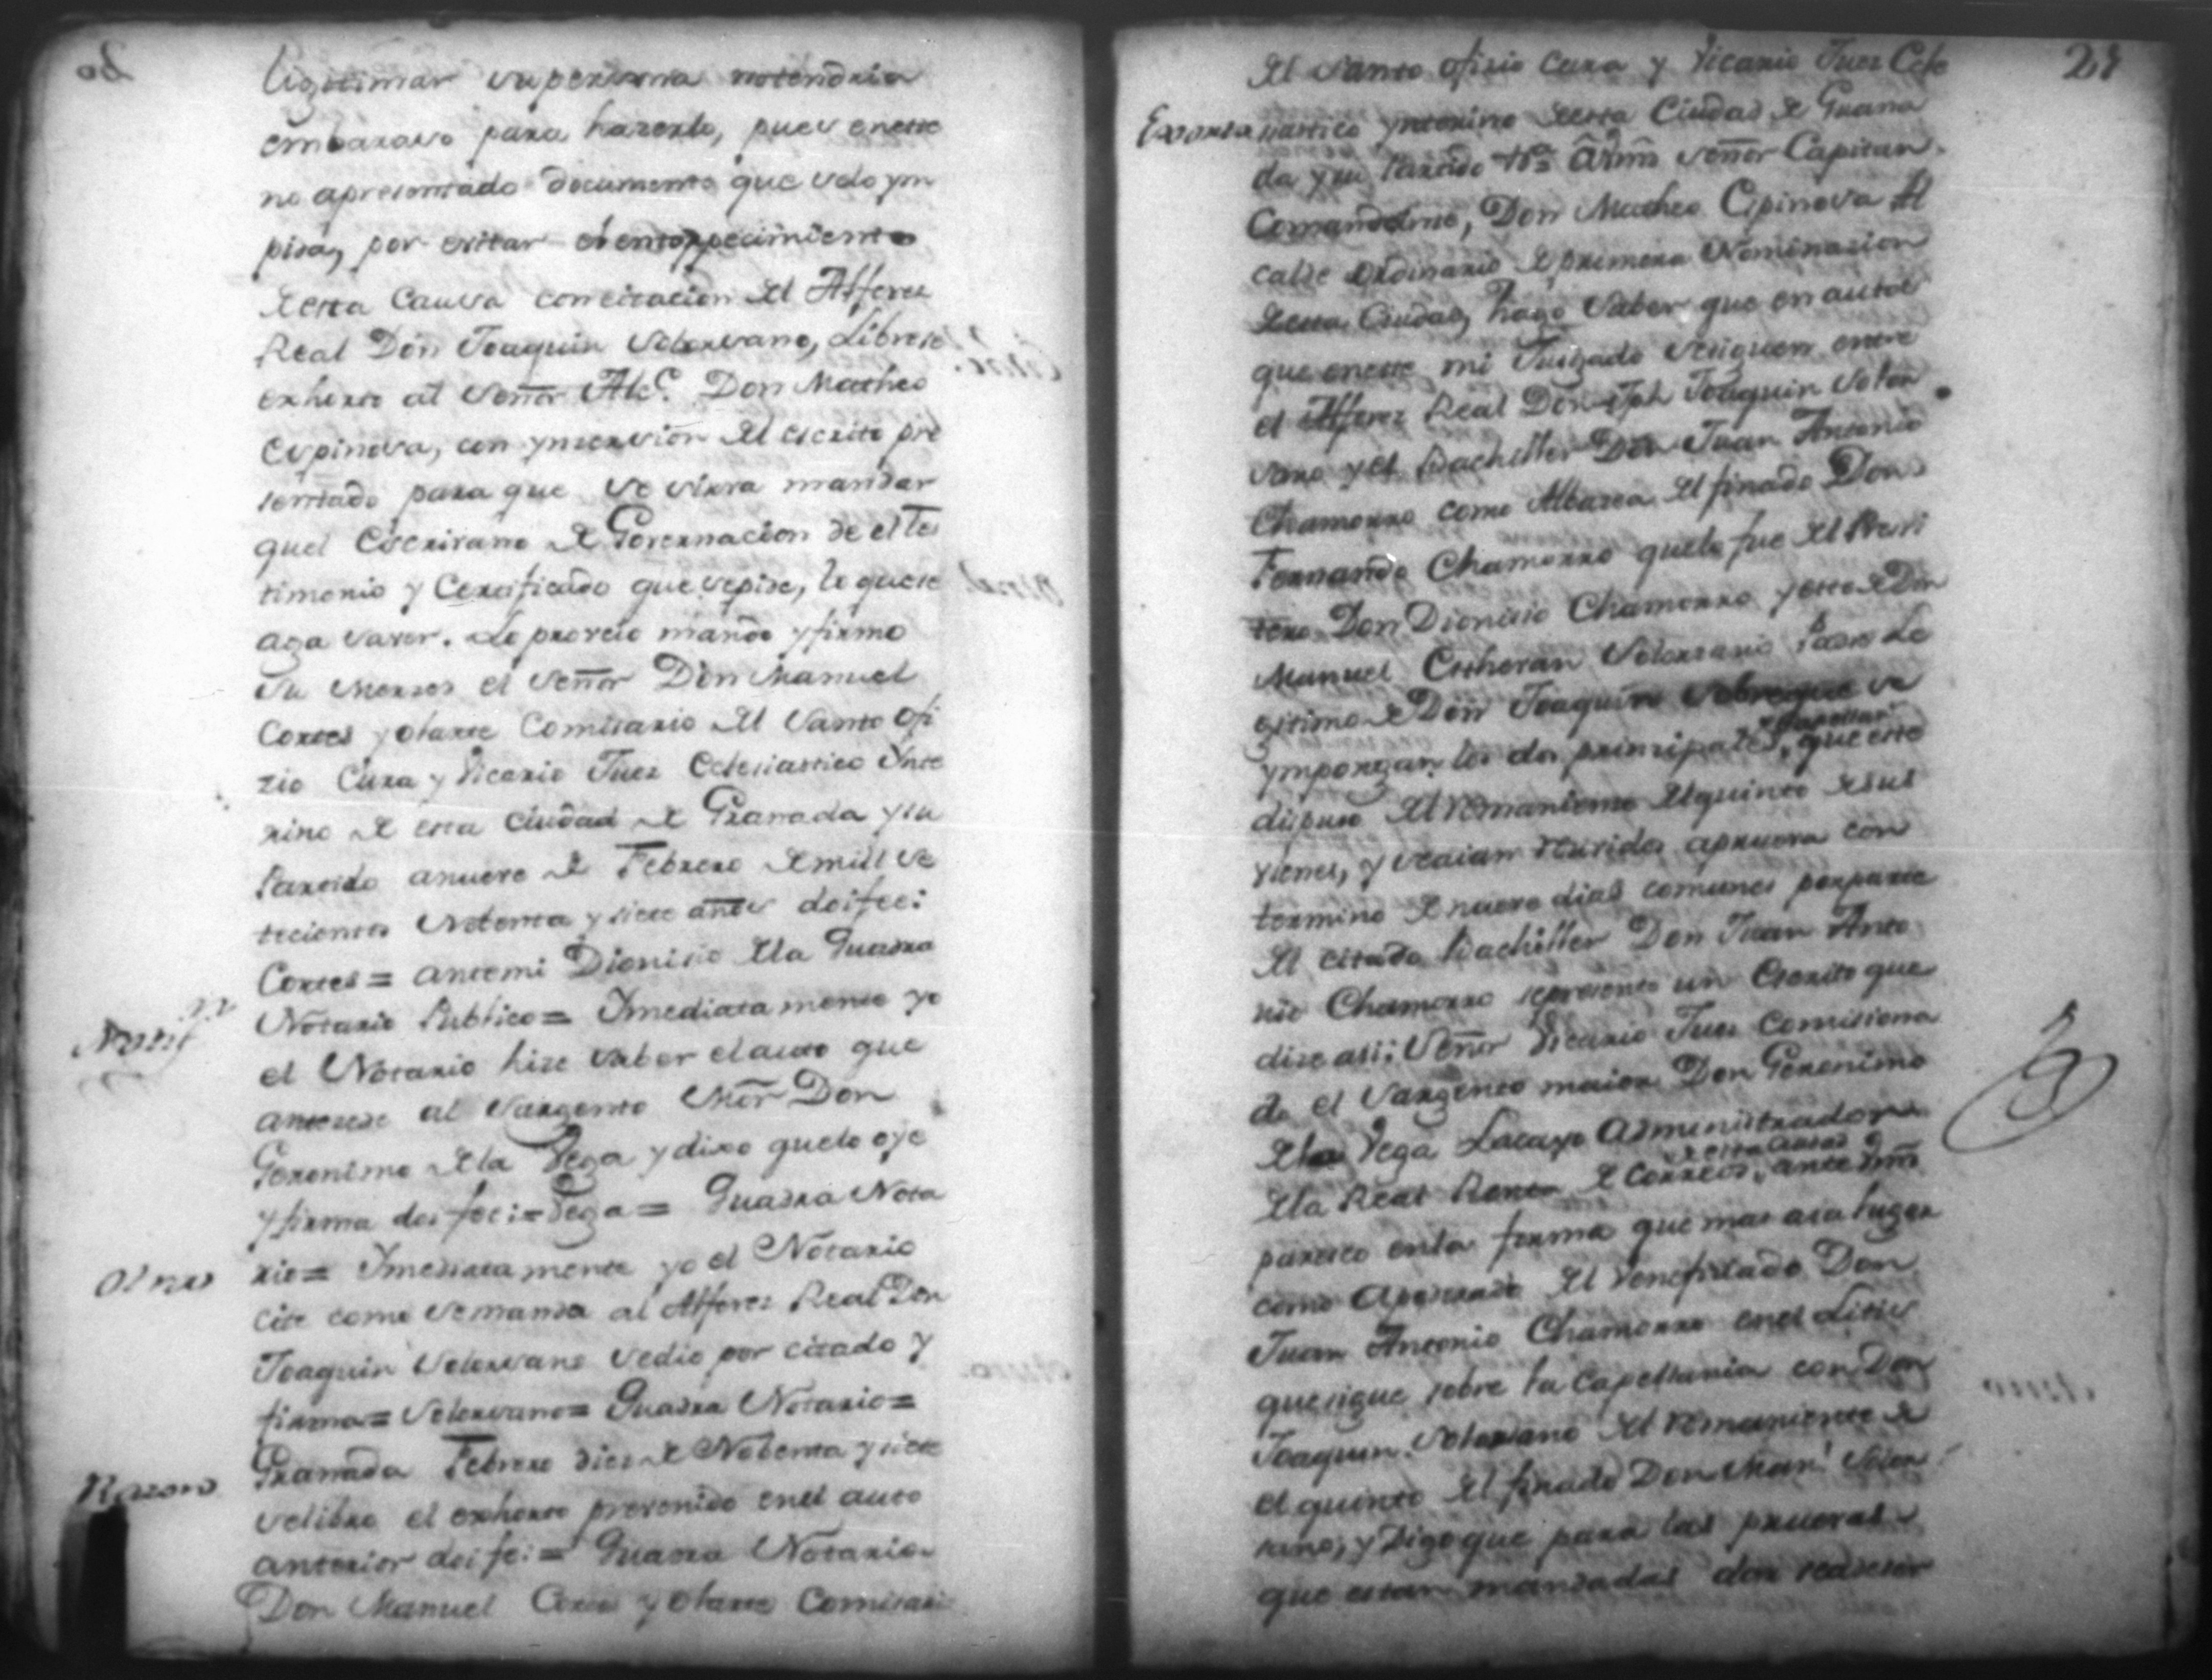 legitimar su persona no tendria
embaraso para hazerlo, pues eneste
no apresentado documento que selo ym
pida, por evitar el entorpecimiento
de esta Causa con citacion del Alferez
Real Don Joaquin Solorsano, Librese
exhorto al Señor Alc.e Don Matheo
Espinosa, con ynsersion del escrito pre
sentado para que se sirva mandar
quel Escrivano de Governacion de el tes
timonio y Certificado que sepide, lo quese
aga saver. Lo proveio mando y firmo
su merced el Señor Don Manuel
Cortes y olarte Comisario del Santo Ofi
zio Cura y Vicario Juez Eclesiastico Ynte
rino de esta Ciudad de Granada y su
Partido anueve de Febrero de mill se
tecientos Nobenta y siete años doi fee:
Cortes = antemi Dionisio de la Quadra
Notario Publico = Ymediatamente yo
Notif.on
el Notario hize saber el auto que
antesede al Sargento Mor Don
Geronimo de la Vega y dixo quelo oye
y firma doi fee: = Vega = Quadra Nota
Otra
rio = Ymediatamente yo el Notario
cite como se manda al Alferez Real Don
Joaquin Solorsano sedio por citado y
firma = Solorsano = Quadra Notario =
Razon
Granada Febrero dies de Nobenta y siete
selibro el exhorto prevenido enel auto
anterior doi fe: = Quadra Notario
Don Manuel Cortes y olarte Comisario
21
del Santo Ofisio Cura y Vicario Juez Ecle
Exorto
siastico ynterino de esta Ciudad de Grana
da y su Partido
Señor Capitan
Comandante, Don Matheo Espinosa Al
calde ordinario de primera Nominacion
de esta Ciudad, hago saber que en autos
que eneste mi Juzgado sesiguen entre
el Alferez Real Don Jph Joaquin Solor
sano y el Bachiller Don Juan Antonio
Chamorro como Albacea del finado Don
Fernando Chamorro quelo fue del Presvi
tero Don Dionisio Chamorro y este de Don
Manuel Estevan Solorsano Padre Le
gitimo de Don Joaquin sobreque se
ympongan los dos principales, que este
dispuso del remaniente del quinto de sus
vienes, y sealan resividos aprueva con
termino de nueve dias comunes por parte
del citado Bachiller Don Juan Anto
nio Chamorro se presento un Escrito que
dize asi: Señor Vicario Juez Comisiona
do el Sargento maior Don Geronimo
de la Vega Lacayo Administrador
de esta Ciudad
de la Real Renta de Correos, ante Vm
paresco enla forma que mas aia lugar
como Apoderado del Venefisiado Don
Juan Antonio Chamorro enel Litis
quesigue sobre la Capellania con Don
Joaquin Solorsano del remaniente de
el quinto del finado Don Man.l Solor
sano, y Digo que para las pruevas
que estan mandadas dar